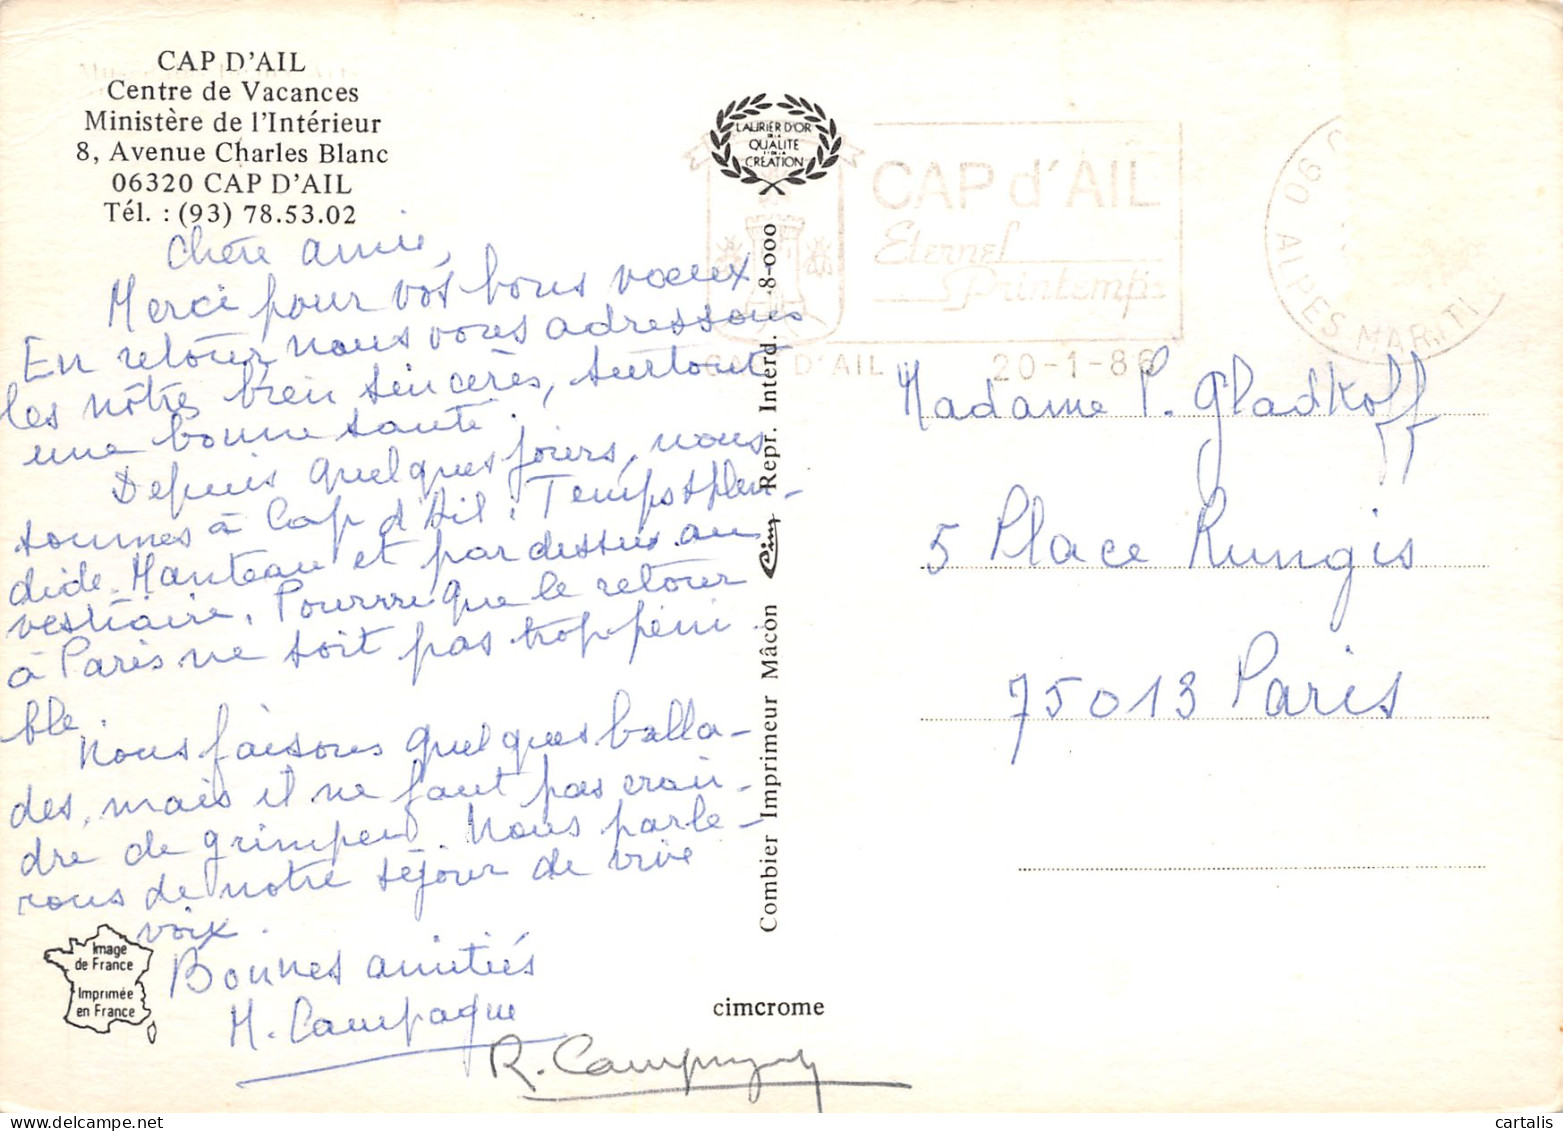 CAP D'AIL
Centre de Vacances
Ministère de l'Intérieur
8, Avenue Charles Blanc
06320 CAP D'AIL
Tél. : (93) 78.53.02
Chère amie,
Merci pour vos bons vœux
En retour nous vous adressons
les nôtres bien sincères, surtout
une bonne santé.
Depuis quelques jours, nous
sommes à Cap d'Ail. Temps splen-
dide. Manteau et pardessus au
vestiaire. Pourvu que le retour
à Paris ne soit pas trop péni
ble.
Nous faisons quelques balla-
des, mais il ne faut pas crain-
dre de grimper. Nous parle-
rons de notre séjour de vive
voix.
Bonnes amitiés
M. Campagne
R. Campagne
Image
de France
Imprimée
en France
LAURIER D'OR
DE LA
QUALITE
ET DE LA
CREATION
Combier Imprimeur Mâcon Cim Repr. Interd. 8-000
cimcrome
CAP d'AIL
Eternel
Printemps
CAP D'AIL
20-1-86
06
ALPES MARITI
Madame P. Gladkoff
5 Place Rungis
75013 Paris
cartalis